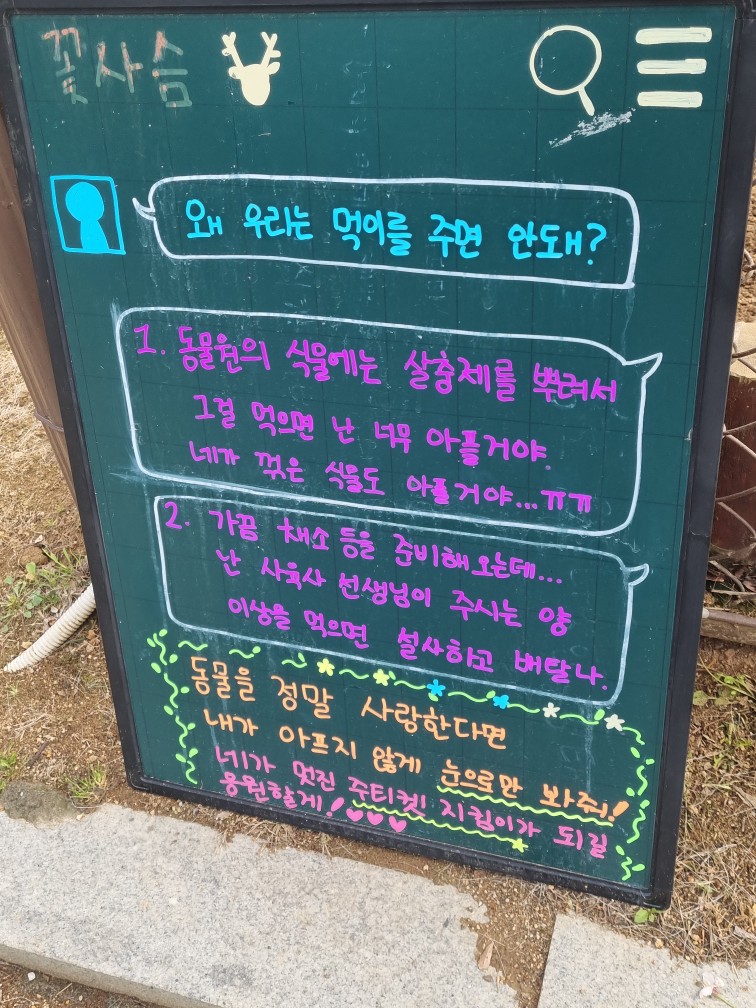 꽃사슴
왜 우리는 먹이를 주면 안돼?
1. 동물원의 식물에는 살충제를 뿌려서
그걸 먹으면 난 너무 아플거야.
네가 꺾은 식물도 아플거야...ㅠㅠ
2. 가끔 채소 등을 준비해오는데...
난 사육사 선생님이 주시는 양
이상을 먹으면 설사하고 배탈나.
동물을 정말 사랑한다면
내가 아프지 않게 눈으로만 봐줘!
네가 멋진 주티켓 지킴이가 되길
응원할게!